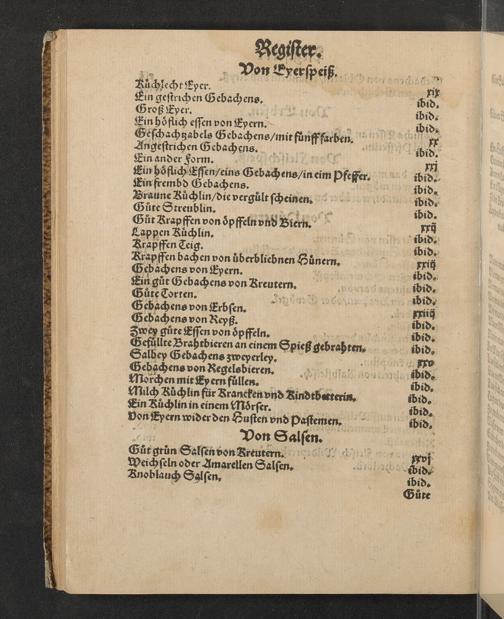 Register.
Von Eyerspeiß.
Küchlecht Eyer. xix
Ein gestrichen Gebachens. ibid.
Groß Eyer. ibid.
Ein höflich essen von Eyern. ibid.
Geschachzabels Gebachens/mit fünff farben. xx
Angestrichen Gebachens. ibid.
Ein ander Form. xxj
Ein höflich Essen/eins Gebachens/in eim Pfeffer. ibid.
Ein frembd Gebachens. ibid.
Braune Küchlin/die vergült scheinen. ibid.
Güte Streublin. ibid.
Güt Krapffen von öpffeln vnd Biern. xxij
Lappen Küchlin. ibid.
Krapffen Teig. ibid.
Krapffen bachen von überbliebnen Hünern. xxiij
Gebachens von Eyern. ibid.
Ein güt Gebachens von Kreutern. ibid.
Güte Torten. ibid.
Gebachens von Erbsen. xxiiij
Gebachens von Reyß. ibid.
Zwey güte Essen von öpffeln. ibid.
Gefüllte Brahtbieren an einem Spieß gebrahten. ibid.
Salbey Gebachens zweyerley. xxv
Gebachens von Regelsbieren. ibid.
Morchen mit Eyern füllen. ibid.
Milch Küchlin für Krancken vnd Kindtbetterin. ibid.
Ein Küchlin in einem Mörser. ibid.
Von Eyern wider den Husten vnd Pastemen. ibid.
Von Salsen.
Güt grün Salsen von Kreutern. xxvj
Weichseln oder Amarellen Salsen. ibid.
Knoblauch Salsen. ibid.
Güte